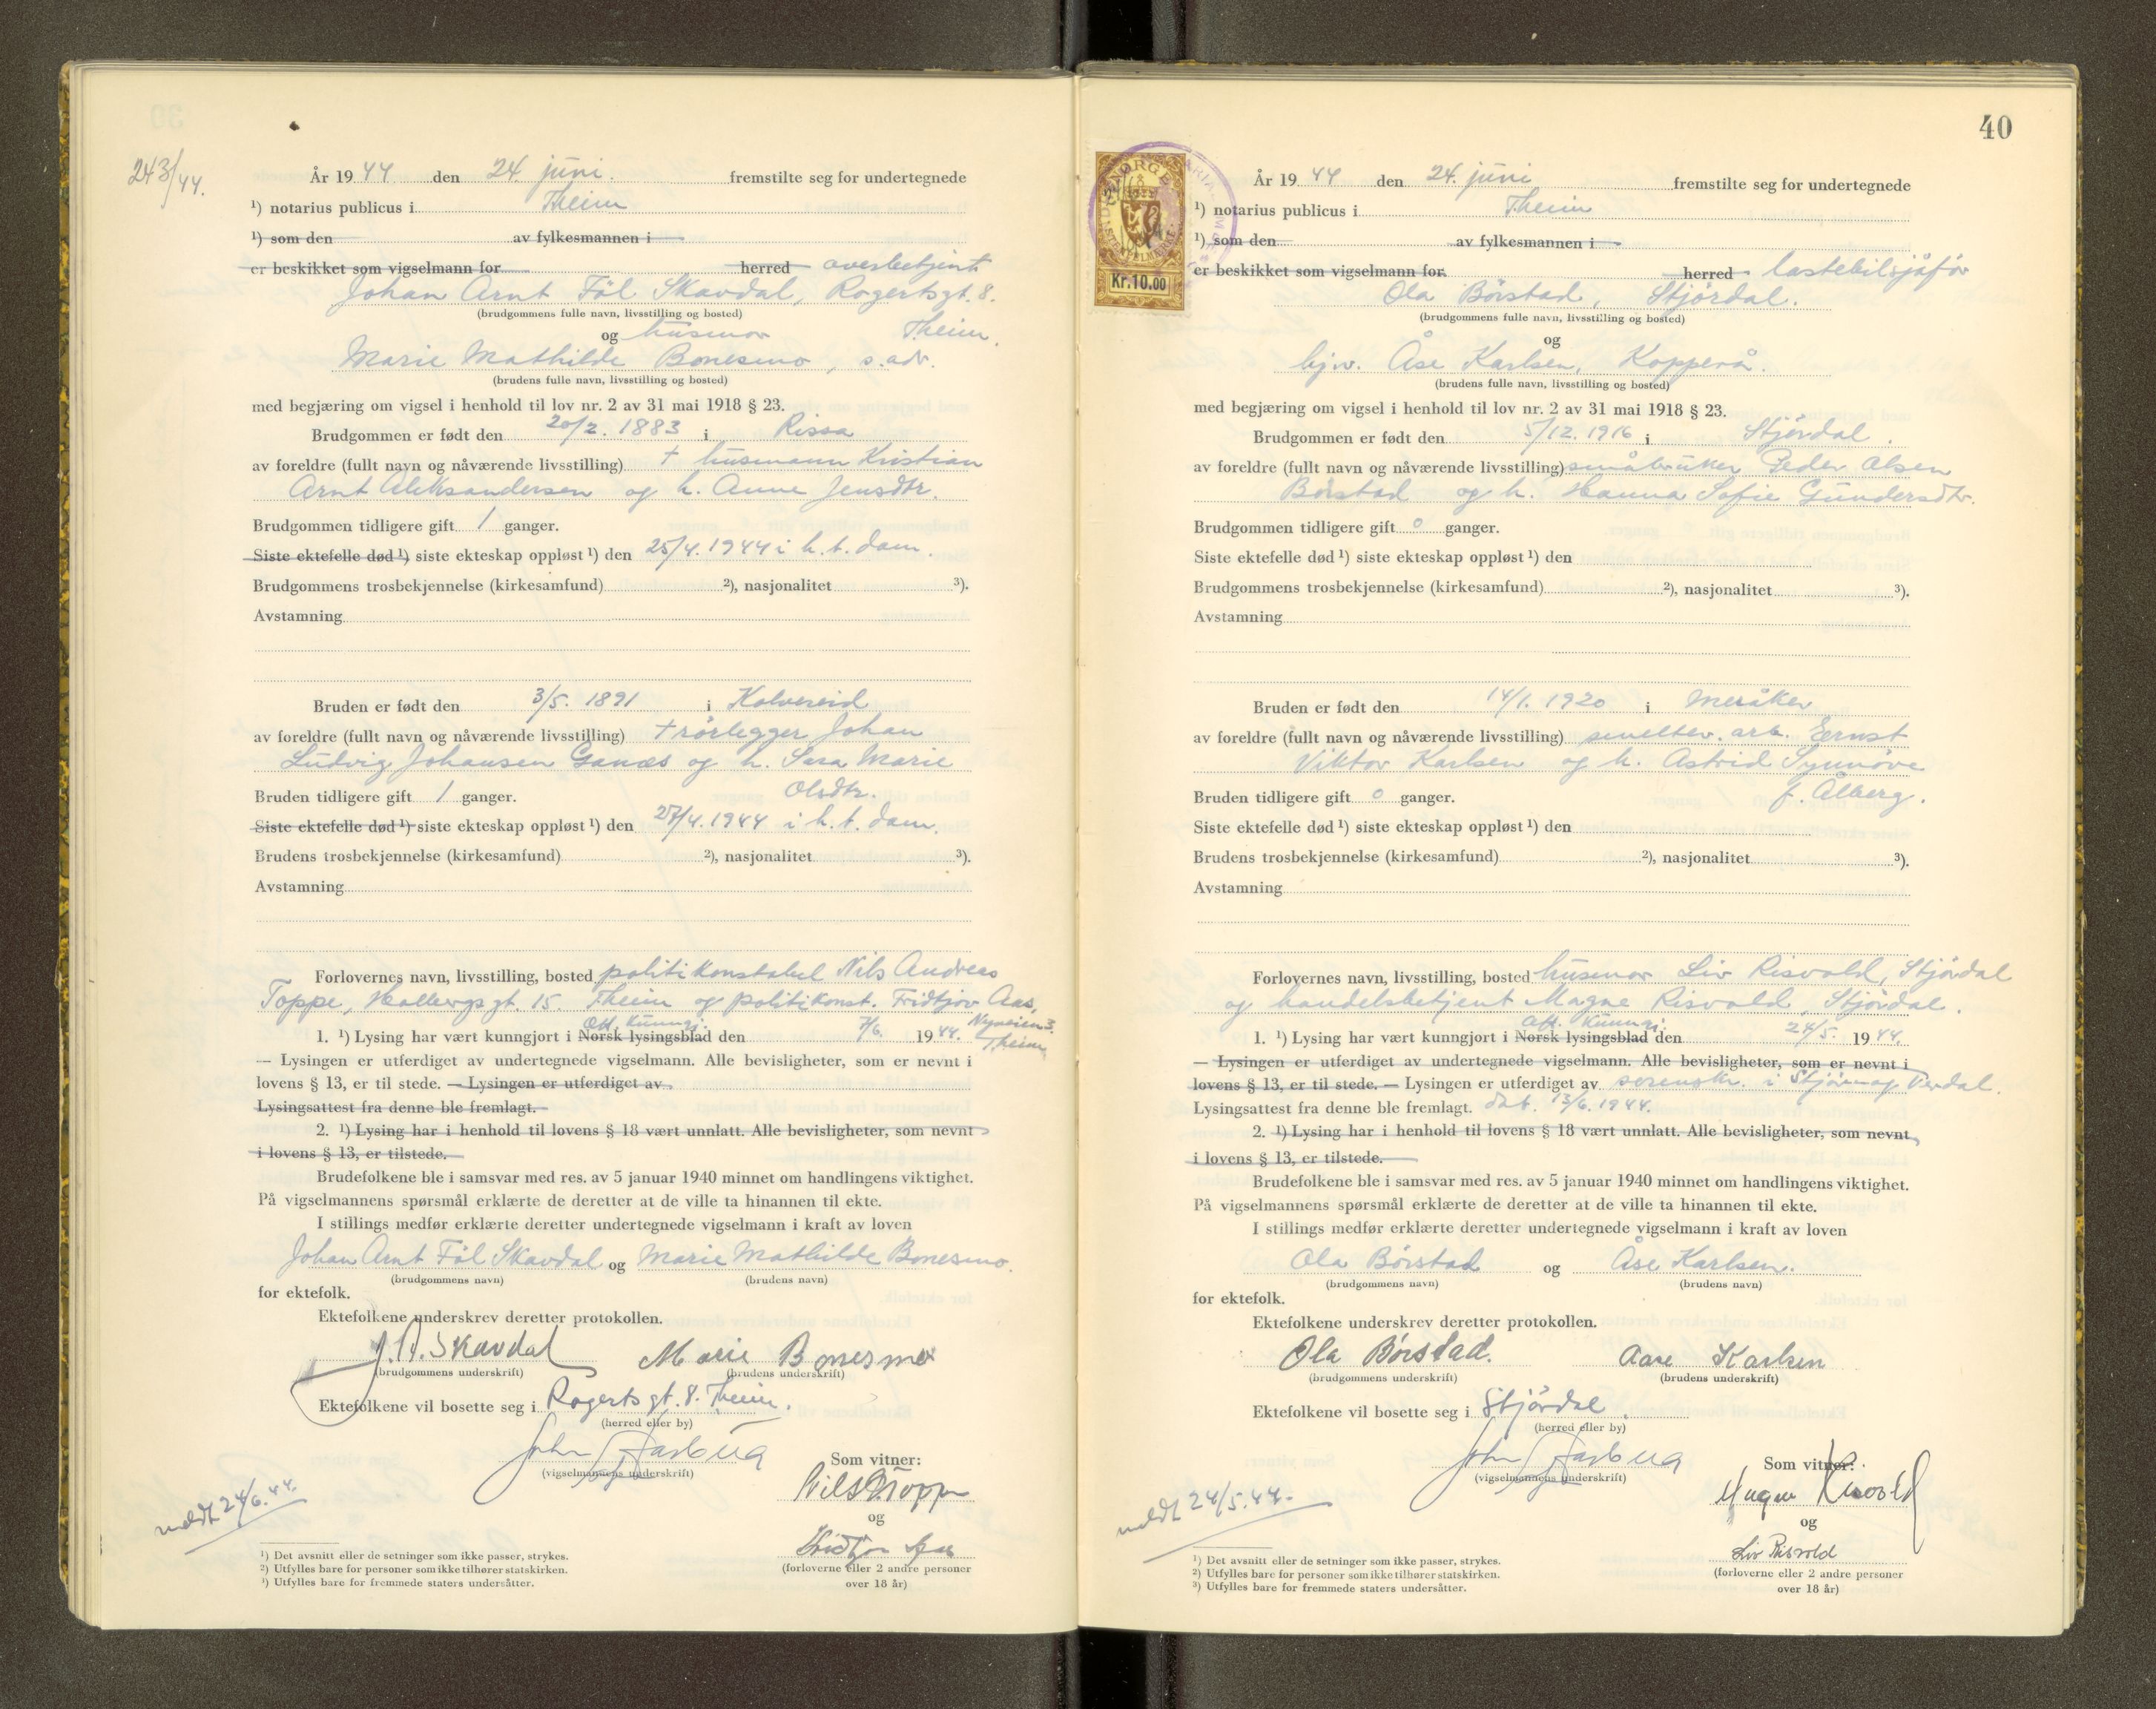 243/44.
År 1944 den 24. juni. fremstilte seg for undertegnede
¹) notarius publicus i Theim
¹) som den av fylkesmannen i
er beskikket som vigselmann for herred overbetjent
Johan Arnt Föl Skavdal, Rogertsgt. 8.
(brudgommens fulle navn, livsstilling og bosted)
og husmor Theim.
Marie Mathilde Bonesmo, s. adr.
(brudens fulle navn, livsstilling og bosted)
med begjæring om vigsel i henhold til lov nr. 2 av 31 mai 1918 § 23.
Brudgommen er født den 20/2. 1883 i Rissa
av foreldre (fullt navn og nåværende livsstilling) † husmann Kristian
Arnt Aleksandersen og h. Anne Jensdtr.
Brudgommen tidligere gift 1 ganger.
Siste ektefelle død ¹) siste ekteskap oppløst ¹) den 25/4. 1944 i h. t. dom.
Brudgommens trosbekjennelse (kirkesamfund) ²), nasjonalitet ³).
Avstamning
Bruden er født den 3/5. 1891 i Kolvereid
av foreldre (fullt navn og nåværende livsstilling) † rörlegger Johan
Ludvig Johansen Ganæs og h. Sara Marie
Bruden tidligere gift 1 ganger. Olsdtr.
Siste ektefelle død ¹) siste ekteskap oppløst ¹) den /4. 1944 i h. t. dom.
Brudens trosbekjennelse (kirkesamfund) ²), nasjonalitet ³).
Avstamning
Forlovernes navn, livsstilling, bosted politikonstabel Nils Andreas
Toppe, gt. 15. Theim og politikonst. Fridtjov Aas,
Off. Kunngj. Nyveien 3.
1. ¹) Lysing har vært kunngjort i Norsk lysingsblad den 7/6. 1944. Theim
— Lysingen er utferdiget av undertegnede vigselmann. Alle bevisligheter, som er nevnt i
lovens § 13, er til stede. — Lysingen er utferdiget av
Lysingsattest fra denne ble fremlagt.
2. ¹) Lysing har i henhold til lovens § 18 vært unnlatt. Alle bevisligheter, som nevnt
i lovens § 13, er tilstede.
Brudefolkene ble i samsvar med res. av 5 januar 1940 minnet om handlingens viktighet.
På vigselmannens spørsmål erklærte de deretter at de ville ta hinannen til ekte.
I stillings medfør erklærte deretter undertegnede vigselmann i kraft av loven
Johan Arnt Föl Skavdal og Marie Mathilde Bonesmo.
(brudgommens navn) (brudens navn)
for ektefolk.
Ektefolkene underskrev deretter protokollen.
J. A. Skavdal Marie Bonesmo
(brudgommens underskrift) (brudens underskrift)
Ektefolkene vil bosette seg i Rogertsgt. 8. Theim.
(herred eller by)
John Aasbua
(vigselmannens underskrift)
Som vitner:
Nils Toppe
og
Fridtjov Aas
(forloverne eller 2 andre personer
over 18 år)
meldt 24/6. 44.
¹) Det avsnitt eller de setninger som ikke passer, strykes.
²) Utfylles bare for personer som ikke tilhører statskirken.
³) Utfylles bare for fremmede staters undersåtter.
40
NORGE
Kr.10.00
År 1944 den 24. juni fremstilte seg for undertegnede
¹) notarius publicus i Theim
¹) som den av fylkesmannen i
er beskikket som vigselmann for herred lastebilsjåför
Ola Börstad, Stjördal.
(brudgommens fulle navn, livsstilling og bosted)
og
hj.v. Åse Karlsen, Kopperå.
(brudens fulle navn, livsstilling og bosted)
med begjæring om vigsel i henhold til lov nr. 2 av 31 mai 1918 § 23.
Brudgommen er født den 5/12. 1916 i Stjördal.
av foreldre (fullt navn og nåværende livsstilling) småbruker Peder Olsen
Börstad og h. Hanna Sofie Gundersdtr.
Brudgommen tidligere gift 0 ganger.
Siste ektefelle død ¹) siste ekteskap oppløst ¹) den
Brudgommens trosbekjennelse (kirkesamfund) ²), nasjonalitet ³).
Avstamning
Bruden er født den 14/1. 1920 i Meråker
av foreldre (fullt navn og nåværende livsstilling) smeltev. arb. Ernst
Viktor Karlsen og h. Astrid Synnöve
Bruden tidligere gift 0 ganger. f. Ålberg.
Siste ektefelle død ¹) siste ekteskap oppløst ¹) den
Brudens trosbekjennelse (kirkesamfund) ²), nasjonalitet ³).
Avstamning
Forlovernes navn, livsstilling, bosted husmor Liv Risvold, Stjördal
og handelsbetjent Magne Risvold, Stjördal.
Off. Kunngj.
1. ¹) Lysing har vært kunngjort i Norsk lysingsblad den 24/5. 1944.
— Lysingen er utferdiget av undertegnede vigselmann. Alle bevisligheter, som er nevnt i
lovens § 13, er til stede. — Lysingen er utferdiget av sorenskr. i Stjör- og Verdal.
Lysingsattest fra denne ble fremlagt. dat. 13/6. 1944.
2. ¹) Lysing har i henhold til lovens § 18 vært unnlatt. Alle bevisligheter, som nevnt
i lovens § 13, er tilstede.
Brudefolkene ble i samsvar med res. av 5 januar 1940 minnet om handlingens viktighet.
På vigselmannens spørsmål erklærte de deretter at de ville ta hinannen til ekte.
I stillings medfør erklærte deretter undertegnede vigselmann i kraft av loven
Ola Börstad og Åse Karlsen.
(brudgommens navn) (brudens navn)
for ektefolk.
Ektefolkene underskrev deretter protokollen.
Ola Börstad. Aase Karlsen
(brudgommens underskrift) (brudens underskrift)
Ektefolkene vil bosette seg i Stjördal.
(herred eller by)
John Aasbua
(vigselmannens underskrift)
Som vitner:
Magne Risvold
og
Liv Risvold
(forloverne eller 2 andre personer
over 18 år)
meldt 24/5. 44.
¹) Det avsnitt eller de setninger som ikke passer, strykes.
²) Utfylles bare for personer som ikke tilhører statskirken.
³) Utfylles bare for fremmede staters undersåtter.